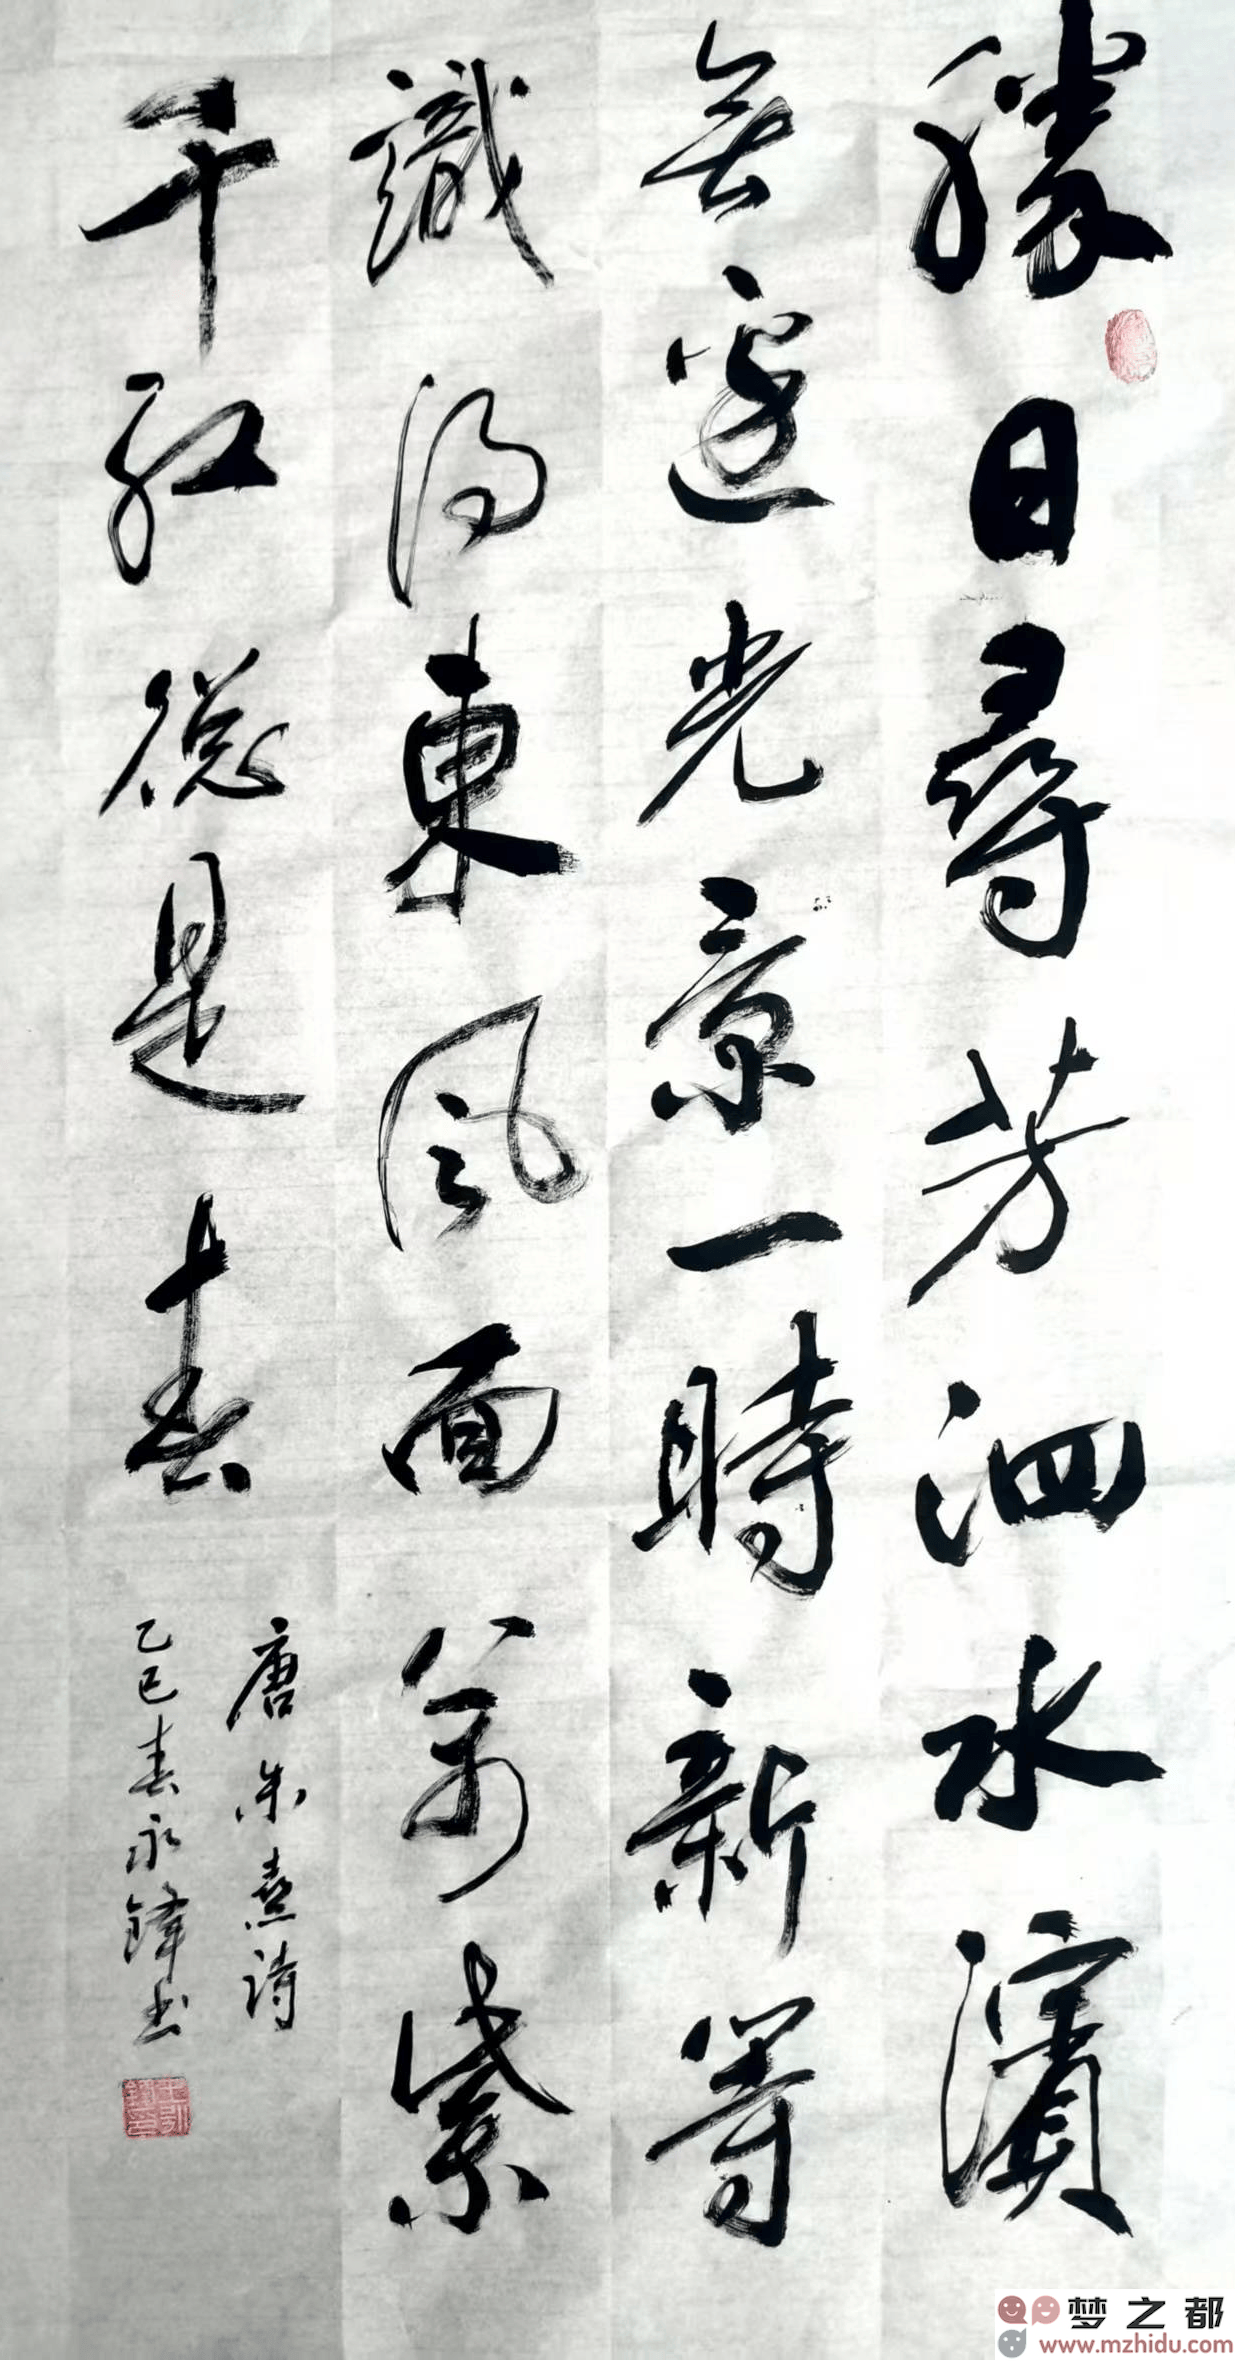 勝日尋芳泗水濱
無邊光景一時新等
識得東風面萬紫
千紅總是春
唐朱熹詩
乙巳春永鋒书
梦之都
www.mzhidu.com